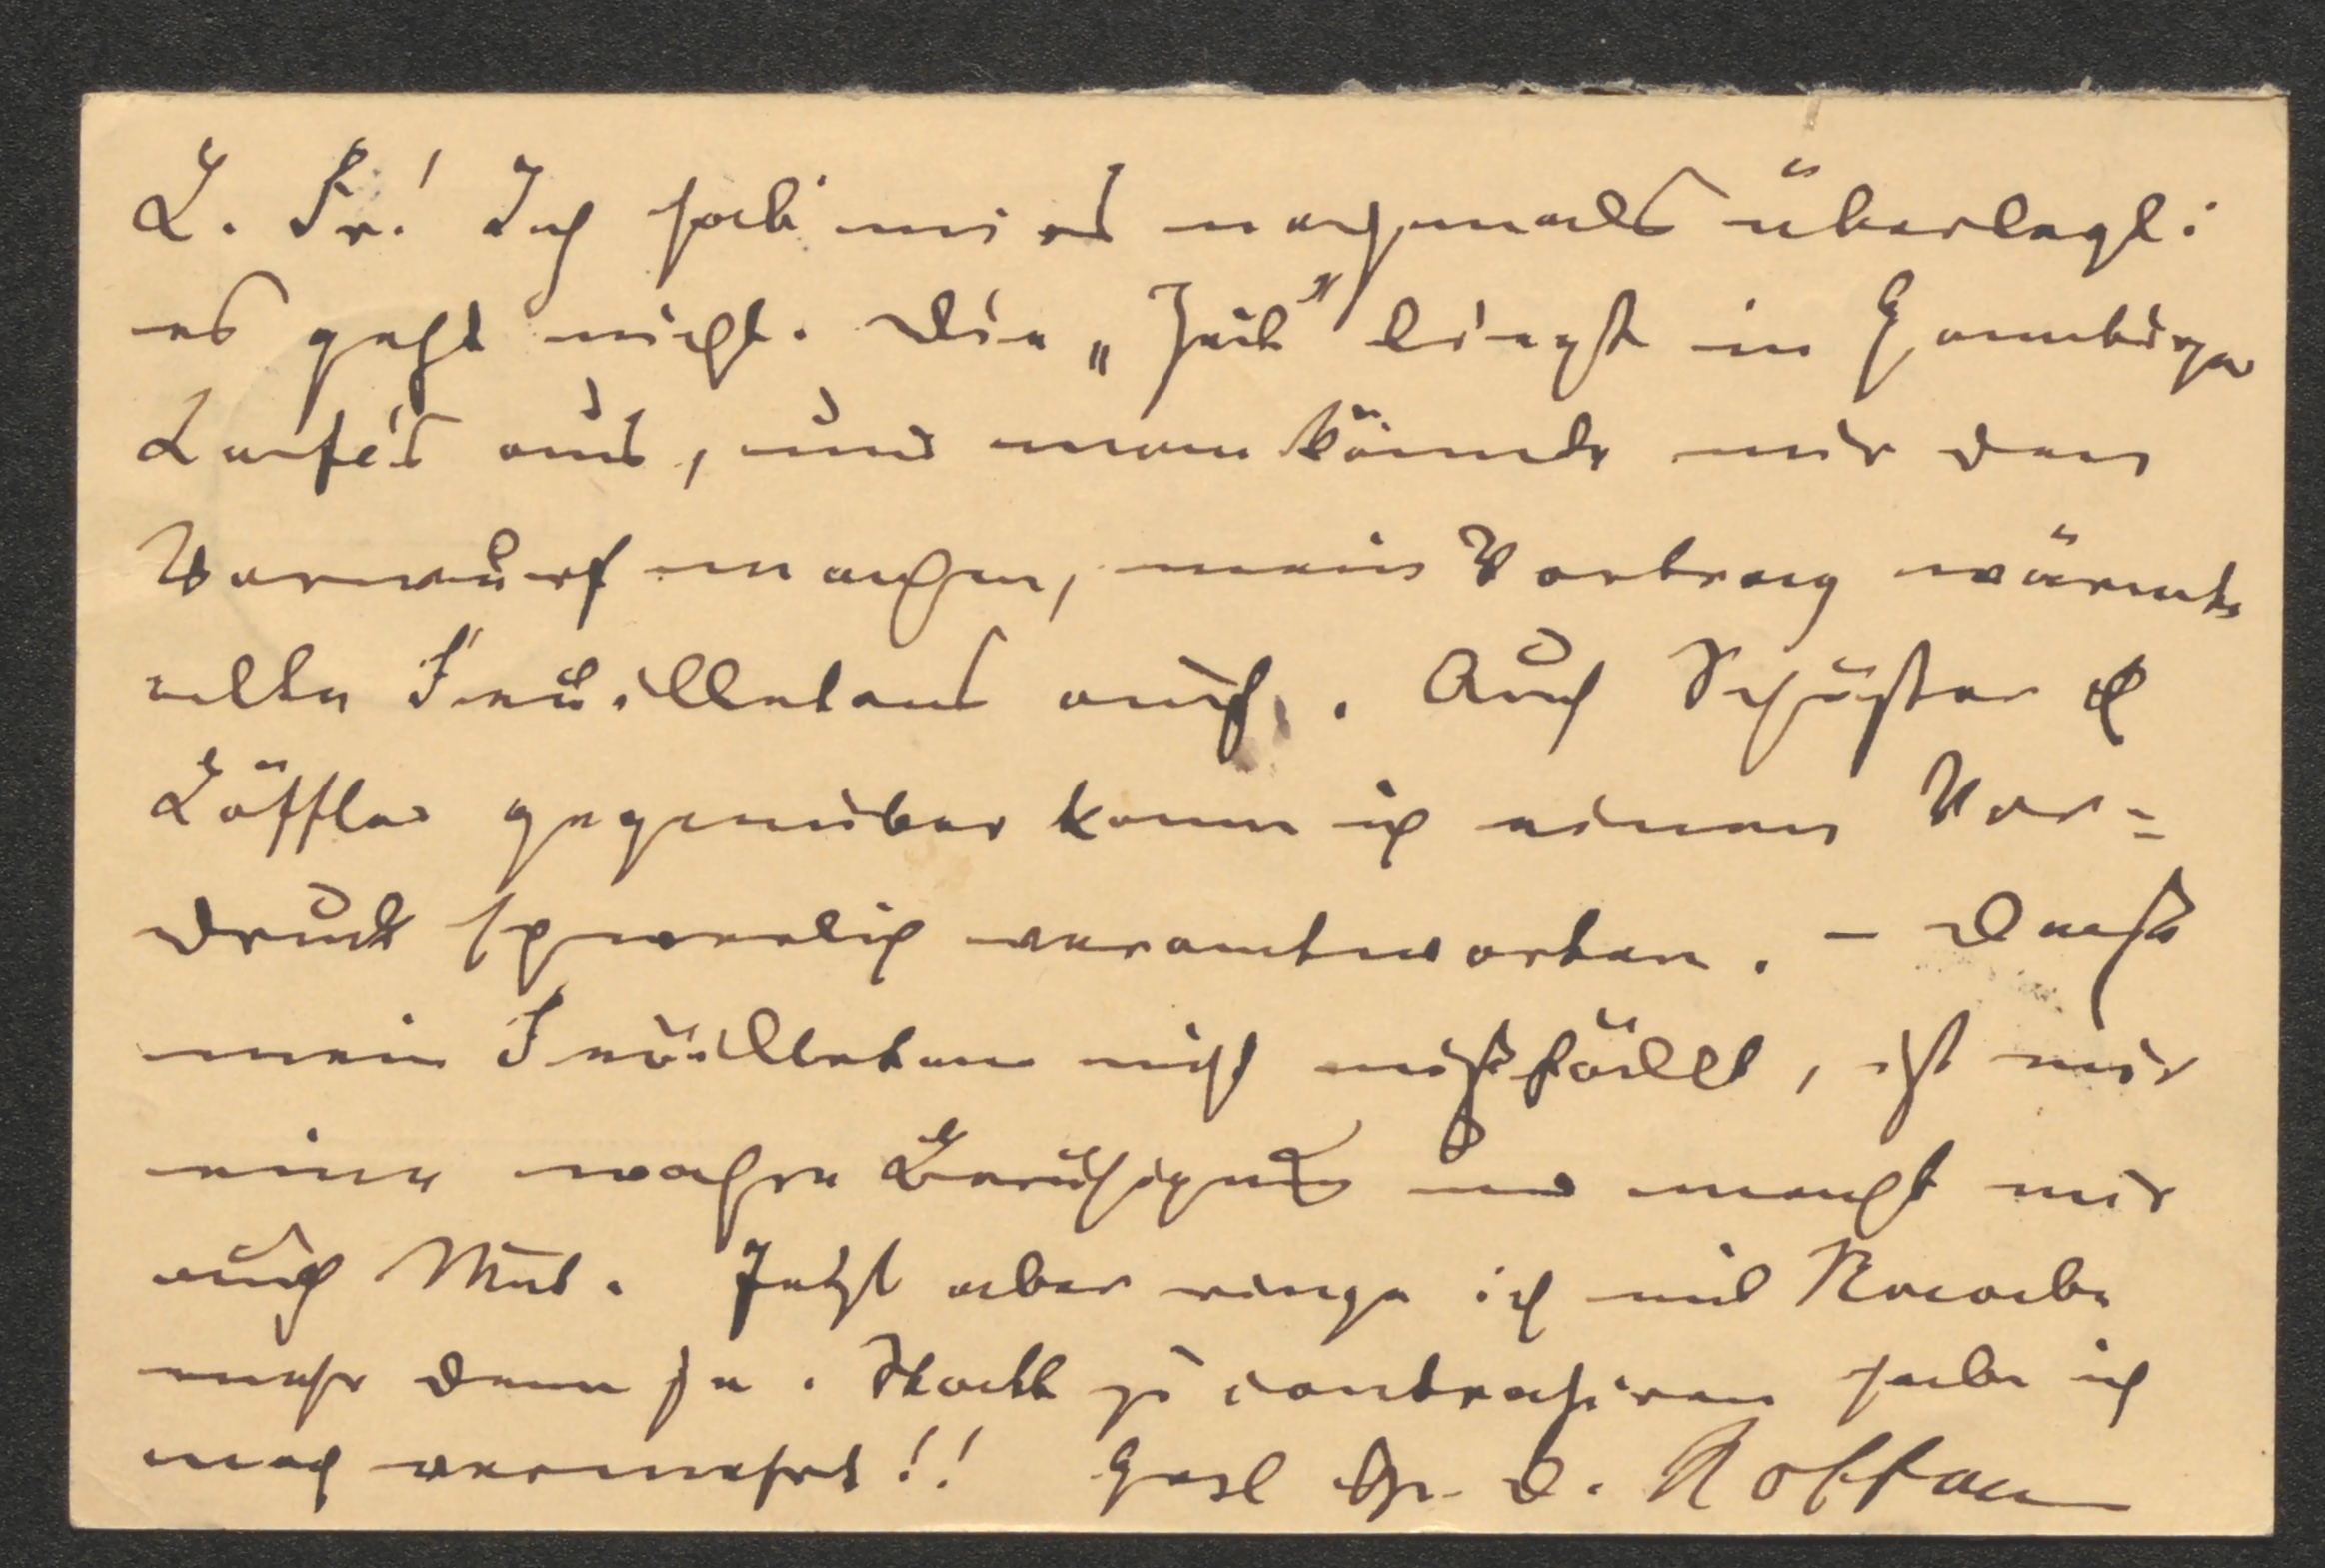 L. Fr.! Ich hab' mir's nochmals überlegt:
es geht nicht. Die „Zeit" liegt in Hamburger
Cafés aus, und man könnte mir den
Vorwurf machen, mein Vortrag wärmte
alte Feuilletons auf. Auch Schuster &
Löffler gegenüber kann ich einen Vor=
druck schwerlich verantworten. – Dass
mein Feuilleton nicht mißfällt, ist mir
eine wahre Beruhigung und macht mir
auch Mut. Jetzt aber ringe ich mit
mehr denn je. Statt zu contrahiren habe ich
noch vermehrt!! Gesl Ihr D.